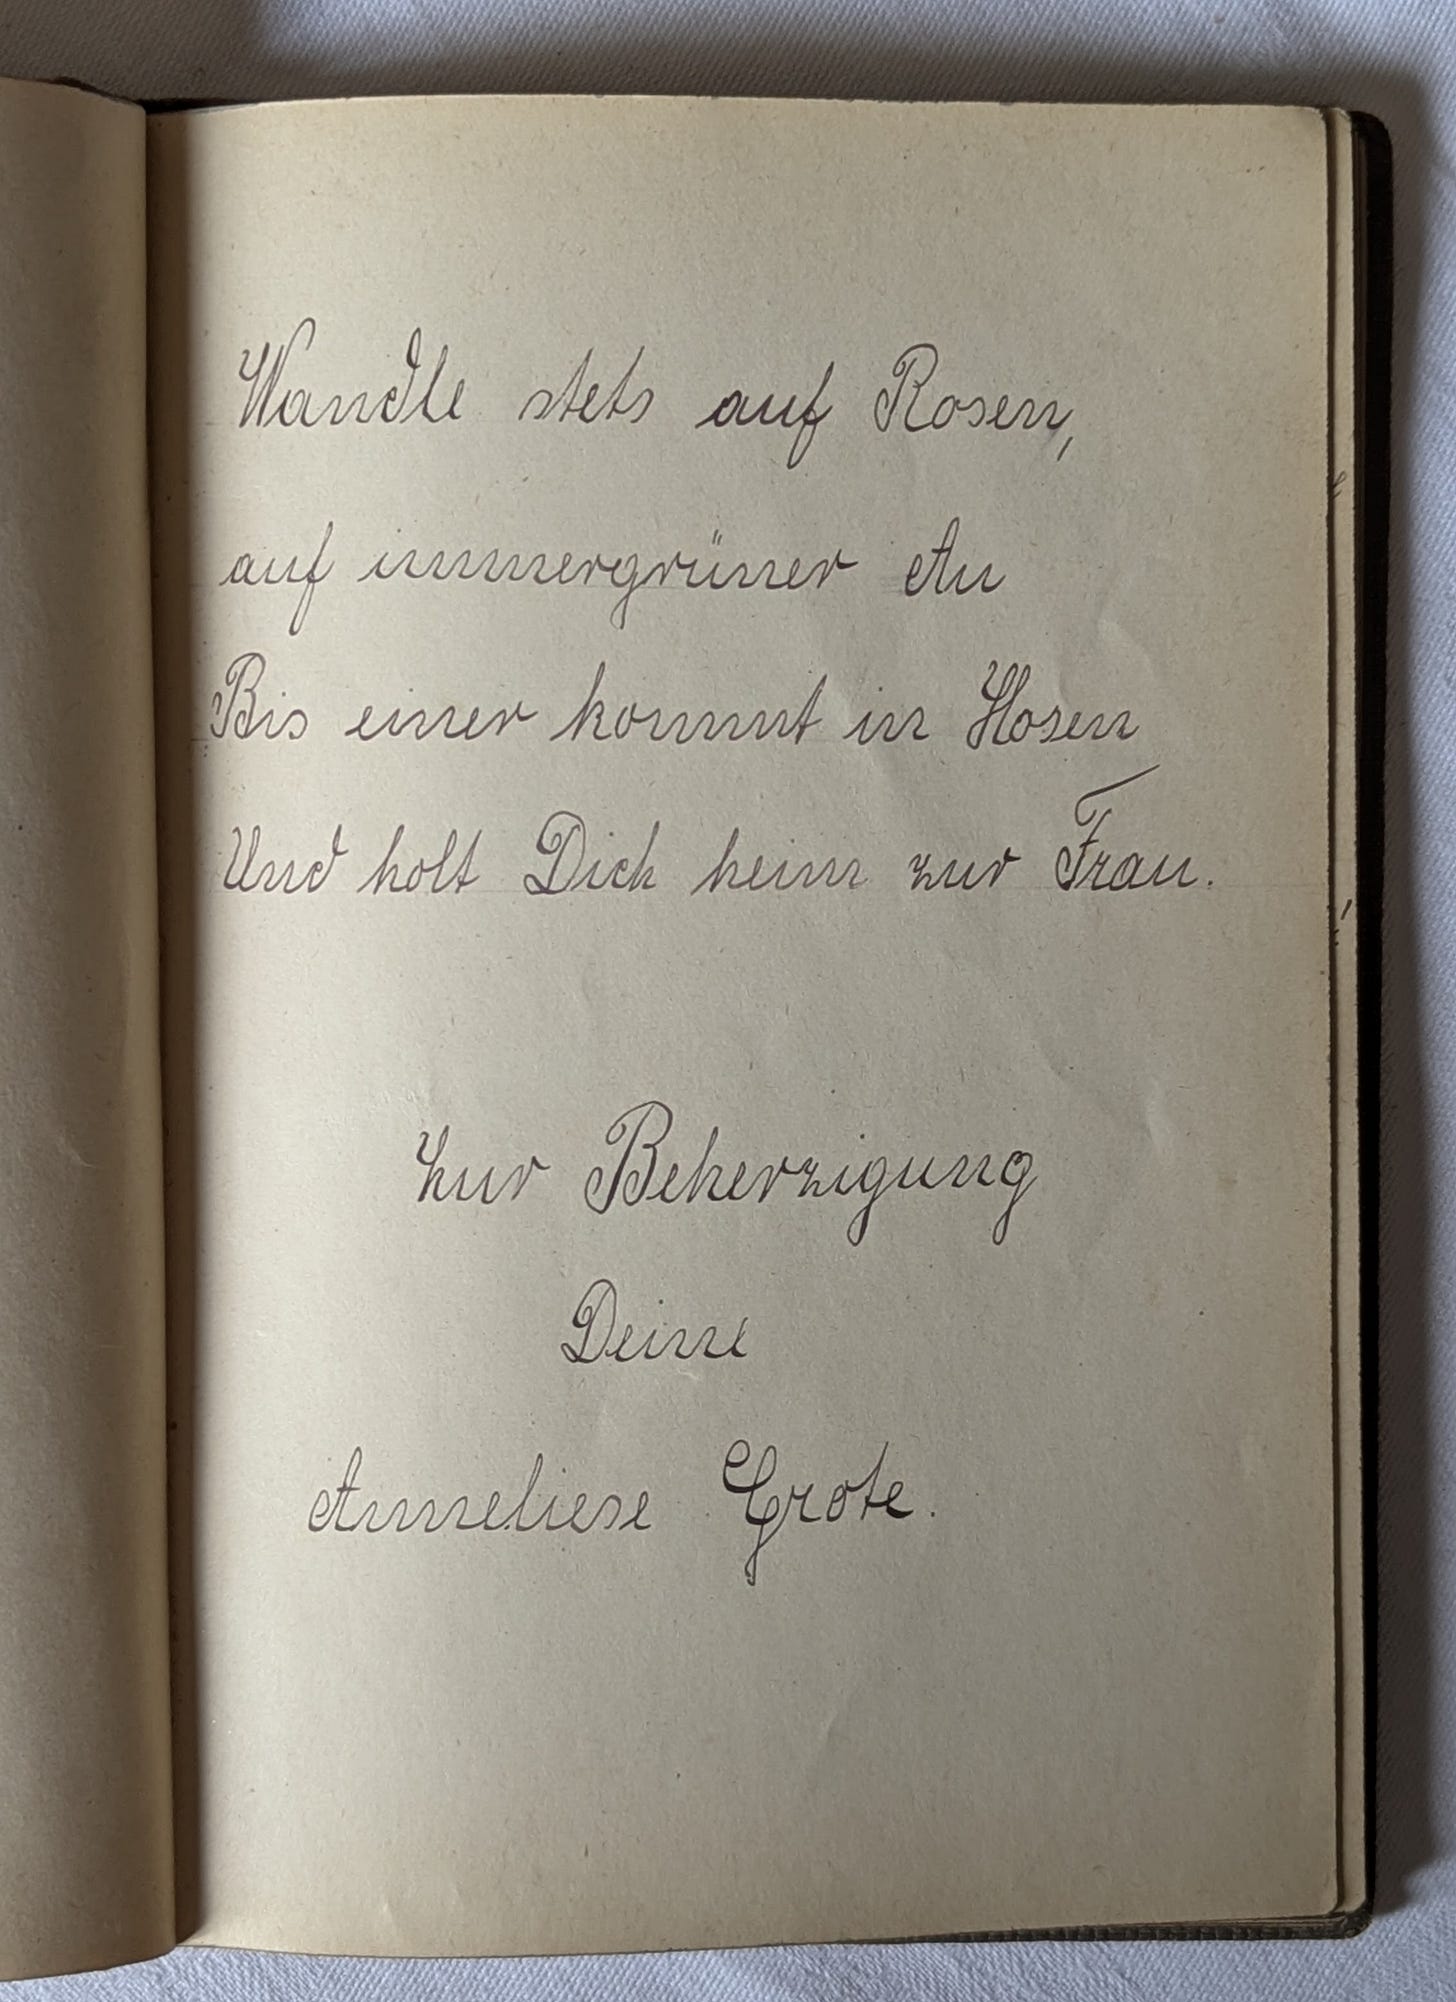 Wandle stets auf Rosen,
auf immergrüner Au
Bis einer kommt in Hosen
Und holt Dich heim zur Frau.
Zur Beherzigung
Deine
Anneliese Grote.